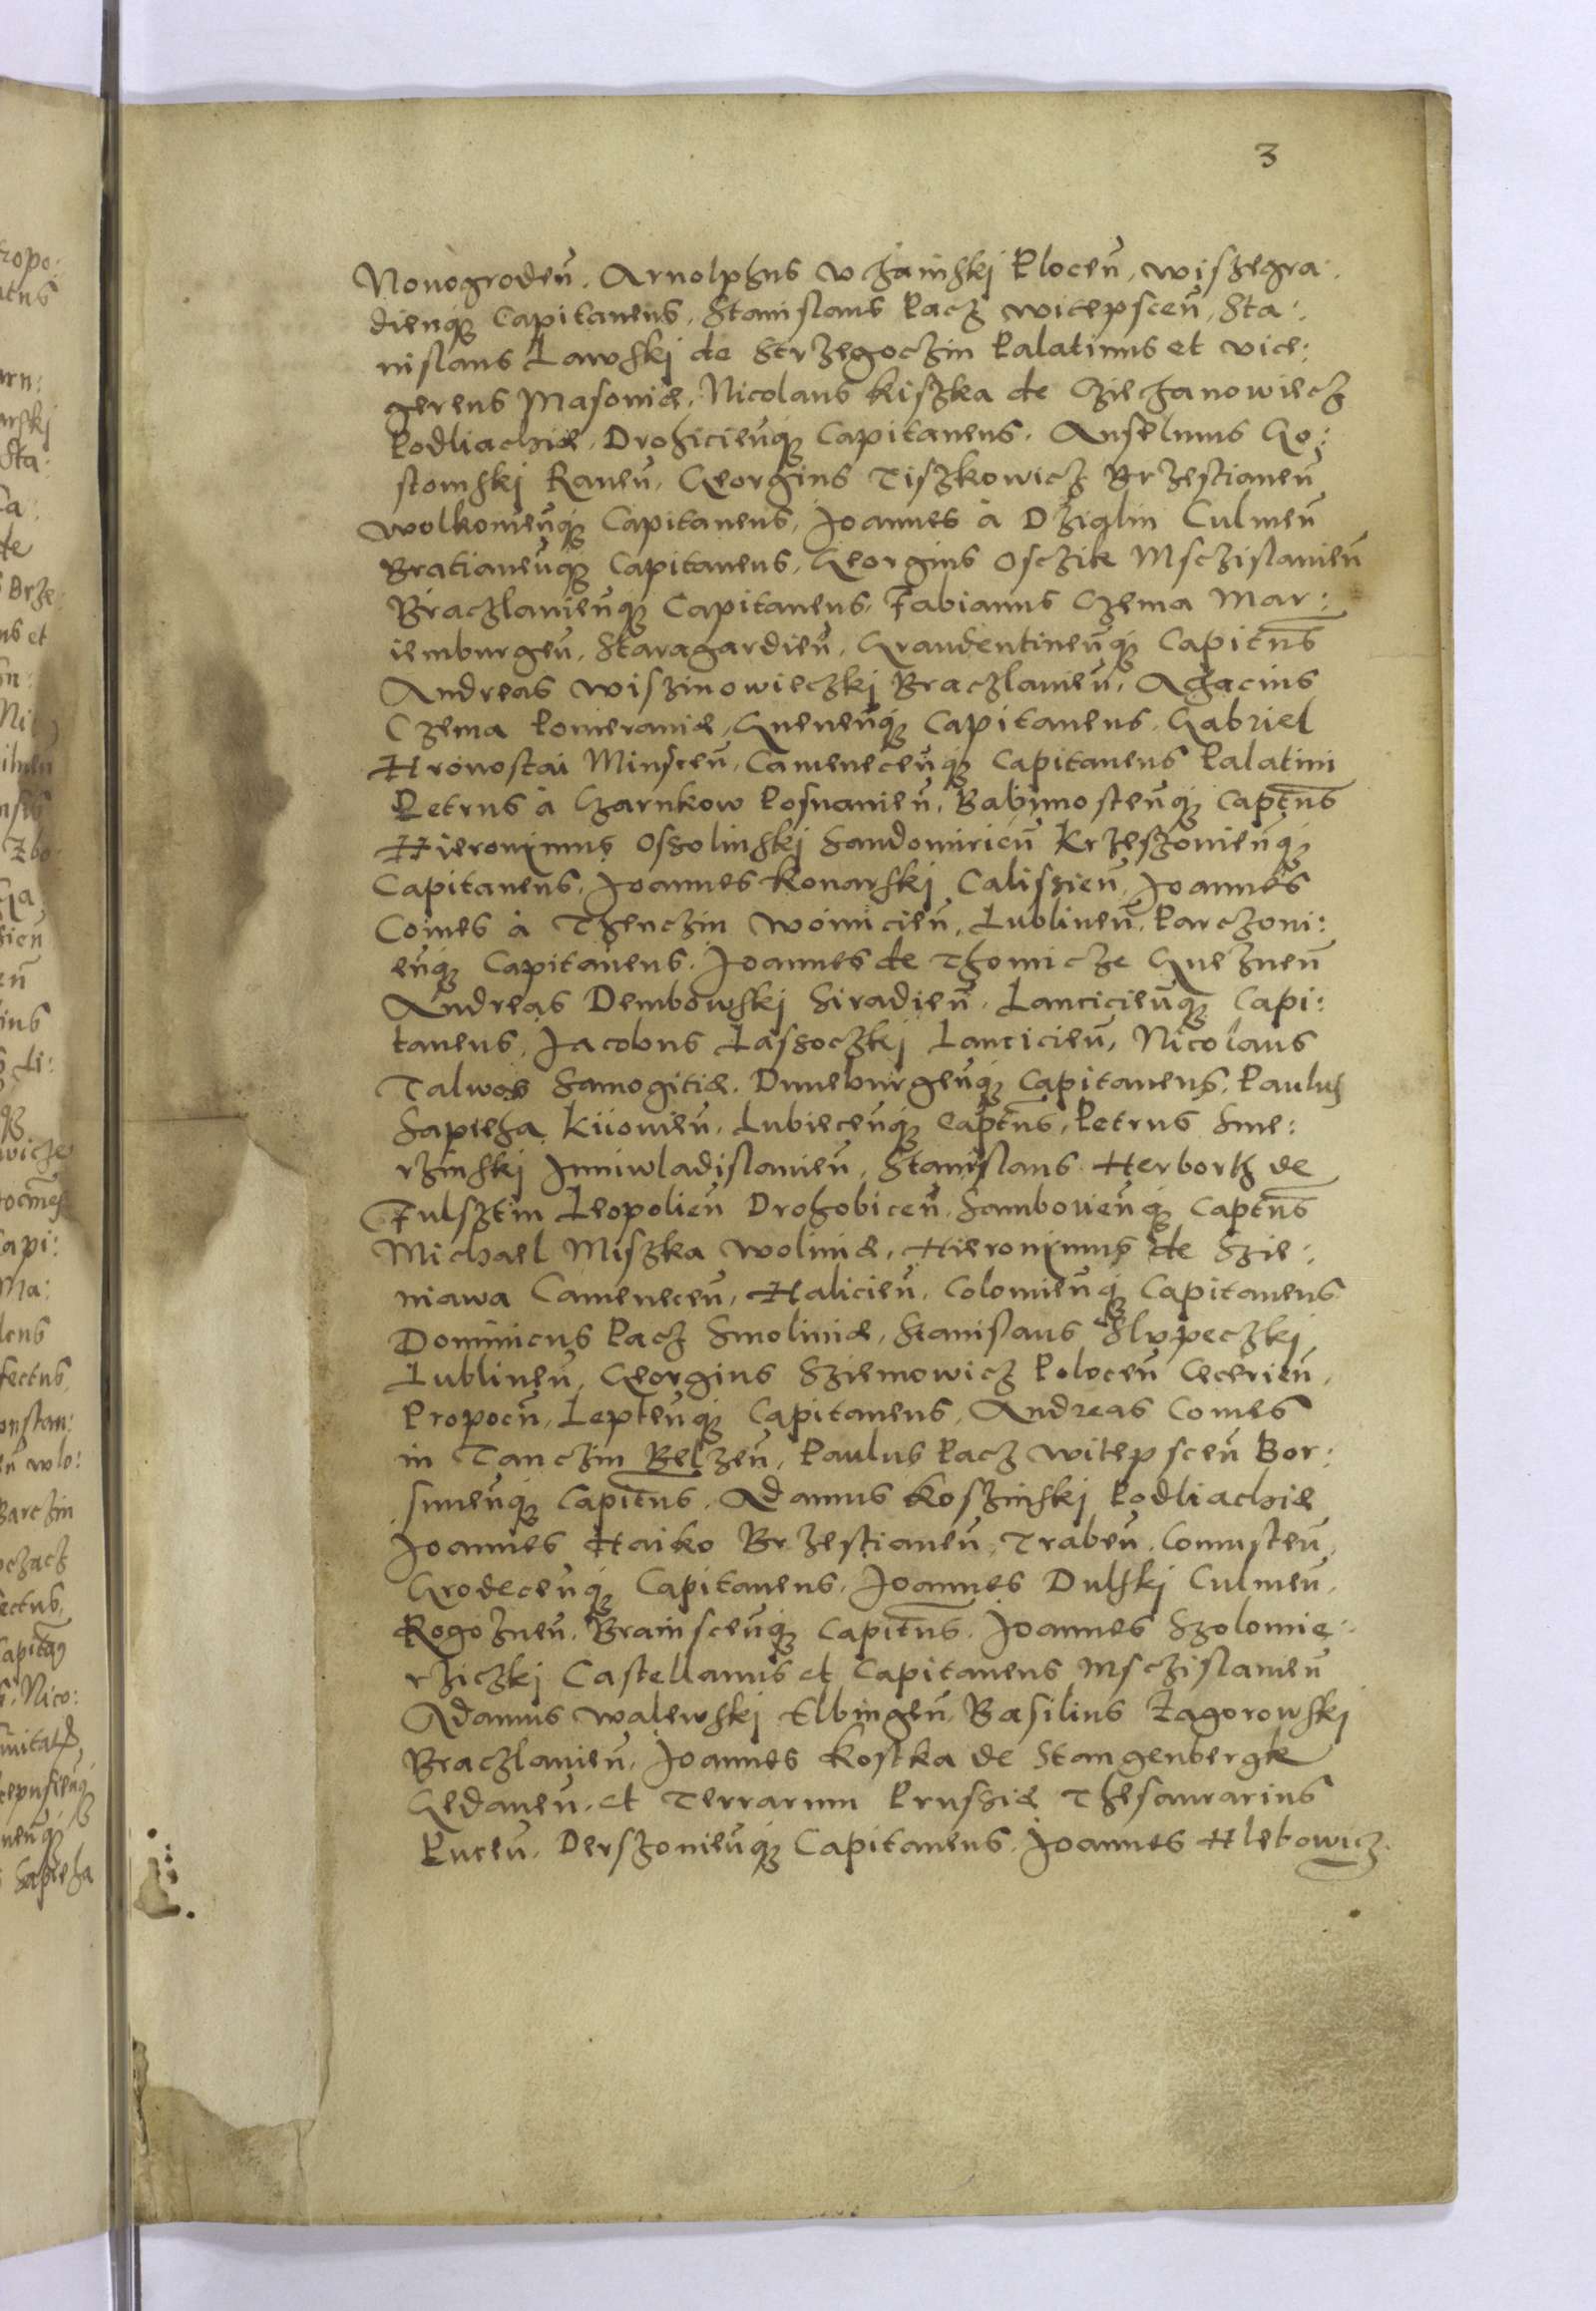 3
Nouogroden̄. Arnolphus vchainskj Plocen̄, wiszegra:
dien̄qȝ Capitaneus, Stanislaus Pacz witepscen̄, Sta:
nislaus Lawskj de Strzegoczin Palatinus et vice:
gerens Masouiæ, Nicolaus Kiszka de Cziechanowiecz
Podliachiæ, Drohicien̄qȝ Capitaneus. Anselmus Go:
stomskj Rauen̄, Georgius Tiszkowicz Brzestianen̄
wolkouien̄qȝ Capitaneus, Joannes à Dzialin Culmen̄
Bratianen̄qȝ Capitaneus, Georgius Osczik Msczislauien̄
Braczlauien̄qȝ Capitaneus, Fabianus Czema Mar:
iemburgen̄, Staragardien̄, Graudentinen̄qȝ Capitn̄s
Andreas wiszniowieczkj Braczlauien̄, Achacius
Czema Pomeraniæ, Gneuen̄qȝ Capitaneus, Gabriel
Hronostai Minscen̄, Camenecen̄qȝ Capitaneus Palatini
Petrus à Czarnkow Posnanien̄, Babimosten̄qȝ Captn̄s
Hieronimus Ossolinskj Sandomirien̄ Krzeszouien̄qȝ
Capitaneus, Joannes Konarskj Calissien̄, Joannes
Comes à Thenczin woinicien̄, Lublinen̄, Parczoui:
en̄qȝ Capitaneus. Joannes de Thomicze Gneznen̄
Andreas Dembowskj Siradien̄, Lancicien̄qȝ Capi:
taneus, Jacobus Lassoczkj Lancicien̄, Nicolaus
Talwos Samogitiæ. Duneburgen̄qȝ Capitaneus, Paulus
Sapieha Kiiouien̄, Lubecen̄qȝ Captn̄s, Petrus Sme:
rzinskj Juniwladislauien̄, Stanislaus Herborth de
Fulsztin Leopolien̄ Drohobicen̄, Samborien̄qȝ Captn̄s
Michael Miszka woliniæ, Hieronimus de Szie:
niawa Camenecen̄, Halicien̄, Colomien̄qȝ Capitaneus
Dominicus Pacz Smoliniæ, Stanislaus Slupeczkj
Lublinen̄, Georgius Sziemowicz Polocen̄ Cecerien̄,
Propocn̄, Lepten̄qȝ Capitaneus, Andreas Comes
in Tanczin Belzen̄, Paulus Pacz witepscen̄ Bor:
sunen̄qȝ Capitn̄s. Adamus Koszinskj Podliachiæ
Joannes Haiko Brzestianen̄, Traben̄. Connusten̄,
Grodecen̄qȝ Capitaneus, Joannes Dulskj Culmen̄,
Rogoznen̄. Brainscen̄qȝ Capitn̄s. Joannes Szolomie:
rziczkj Castellanus et Capitaneus Msczislauien̄
Adamus walewskj Elbingen̄, Basilius Zagorowskj
Braczlauien̄, Joannes Kostka de Stangenbergk
Gedanen̄, et Terrarum Prussiæ Thesaurarius
Pucen̄, Derszouien̄qȝ Capitaneus. Joannes Hlebowicz